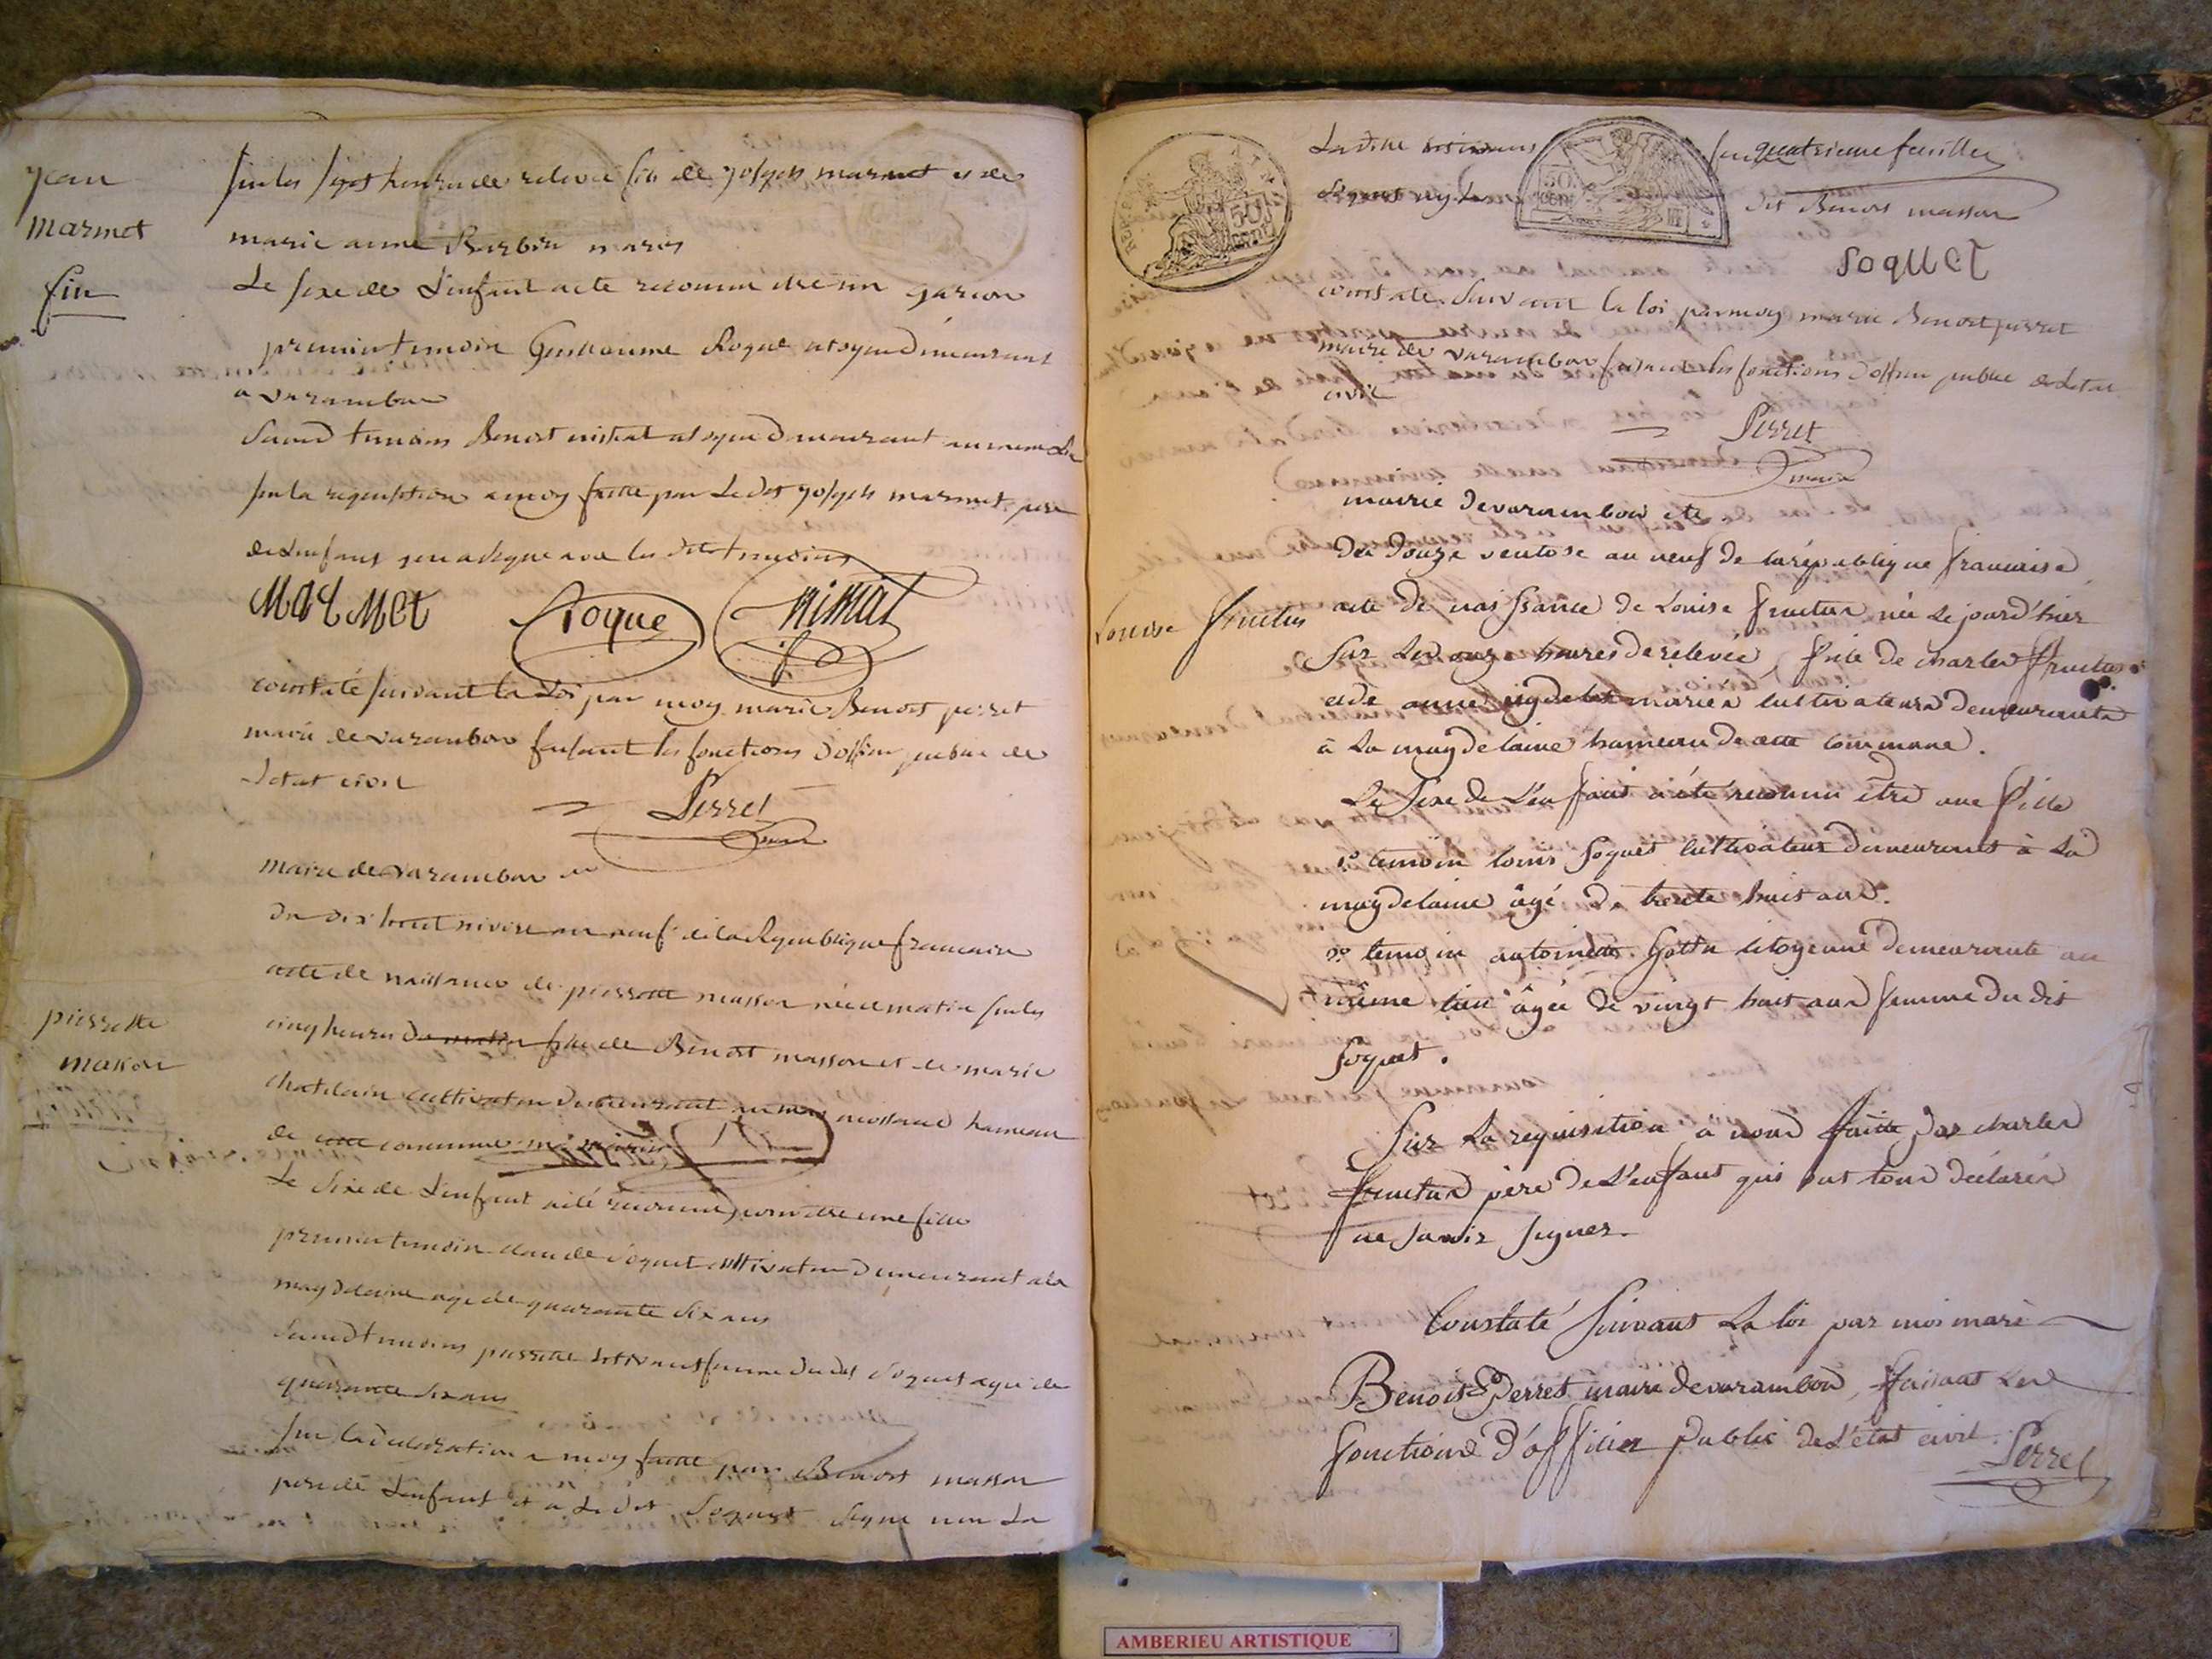 jean
marmet
fin
sur les sept heures de relevée fils de joseph marmet et de
marie anne Barbin mariés
Le sexe de L'enfant a été reconnu être un garcon
premier temoin Guillaume Roque citoyen demeurant
a varambon
Second temoins Benoit citoyen demeurant au meme Lieu
sur la requisition a moy faitte par Le dit joseph marmet pere
de Lenfant qui a signé avec les dits temoins
MARMET Roque
constaté suivant la Loi par moy marie Benoit perret
maire de varambon faisant les fonctions d'officier public de
Letat civil
Perret
maire
maire de varambon
du dix huit nivose an neuf de la Republique francaise
pierrette
masson
acte de naissance de pierrette masson née ce matin sur les
cinq heures du matin fille de Benoit masson et de marie
chatelain cultivateur demeurant hameau
de cette commune
Le sexe de L'enfant a été reconnu être une fille
premier temoin claude soquet cultivateur demeurant a la
magdelaine agé de quarante six ans
Second temoins pierrette femme du dit soquet agée de
quarante six ans
sur la declaration a moy faitte par Benoit masson
pere de Lenfant et a Le dit Soquet Signé non La
La ditte
quatrieme feuillet
dit Benoit masson
50 CENT
SOQUET
constaté Suivant la loi par moy marie Benoit perret
maire de varambon faisant les fonctions d'officier public de Letat
civil
Perret
maire
mairie de varambon etc.
du douze ventose an neuf de la république francaise
Louise fructus
acte de naissance de Louise fructus née le jour d'hier
sur les onze heures de relevée, fille de charles fructus
et de anne mariés cultivateurs demeurants
à La magdelaine hameau de cette commune.
Le Sexe de L'enfant a été reconnu être une fille
1er temoin louis soquet cultivateur demeurant à La
magdelaine âgé de trente huit ans.
2e temoin antoinette citoyenne demeurante au
même lieu âgée de vingt huit ans femme du dit
soquet.
Sur La requisition à nous faitte par charles
fructus père de L'enfant qui ont tous déclarés
ne savoir signer.
Constaté Suivant La loi par moi marie
Benoit Perret maire de varambon, faisant Les
fonctions d'officier public de L'état civil.
Perret
AMBERIEU ARTISTIQUE